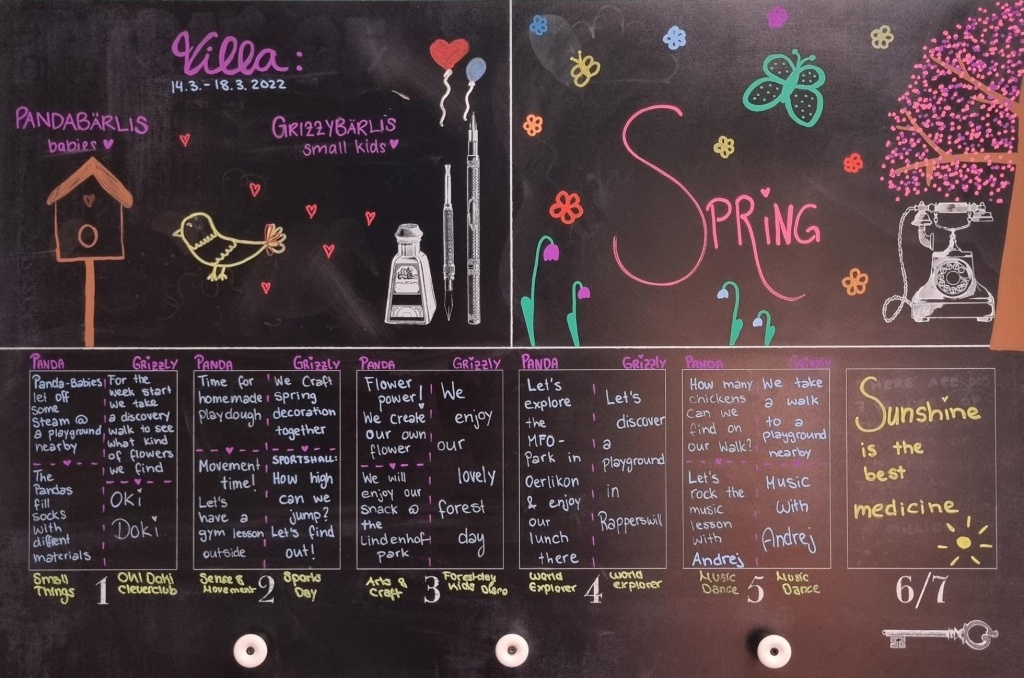 Villa:
14.3. - 18.3. 2022
PANDABÄRLIS
babies
GRIZZYBÄRLIS
small kids
SPRiNG
PANDA
GRizzLY
Panda-Babies
let off
some
steam @
a playground
nearby
The
Pandas
fill
socks
with
diffrent
materials
For the
week start
we take
a discovery
walk to see
what kind
of flowers
we find
OKi
DoKi
Small
Things
1
Oh! Doki
Cleverclub
PANDA
GRizzLY
Time for
homemade
playdough,
Movement
time!
Let's
have a
gym lesson
outside
We Craft
spring
decoration
together
SPORTSHALL:
How high
can we
jump?
Let's find
out!
Sense &
Movement
2
Sports
Day
PANDA
GRizzLY
Flower
power!
We create
our own
flower
We will
enjoy our
snack @
the
Lindenhof-
park
We
enjoy
our
lovely
forest
day
Arts &
Craft
3
Forestday
Kids Disco
PANDA
GRizzLY
Let's
explore
the
MFO-
Park in
Oerlikon
& enjoy
our
lunch
there
Let's
discover
a
playground
in
Rapperswil
World
Explorer
4
World
explorer
PANDA
GRizzLY
How many
chickens
can we
find on
our walk?
Let's
rock the
music
lesson
with
Andrej
We take
a walk
to a
playground
nearby
Music
with
Andrej
Music
Dance
5
Music
Dance
Sunshine
is the
best
medicine
6/7